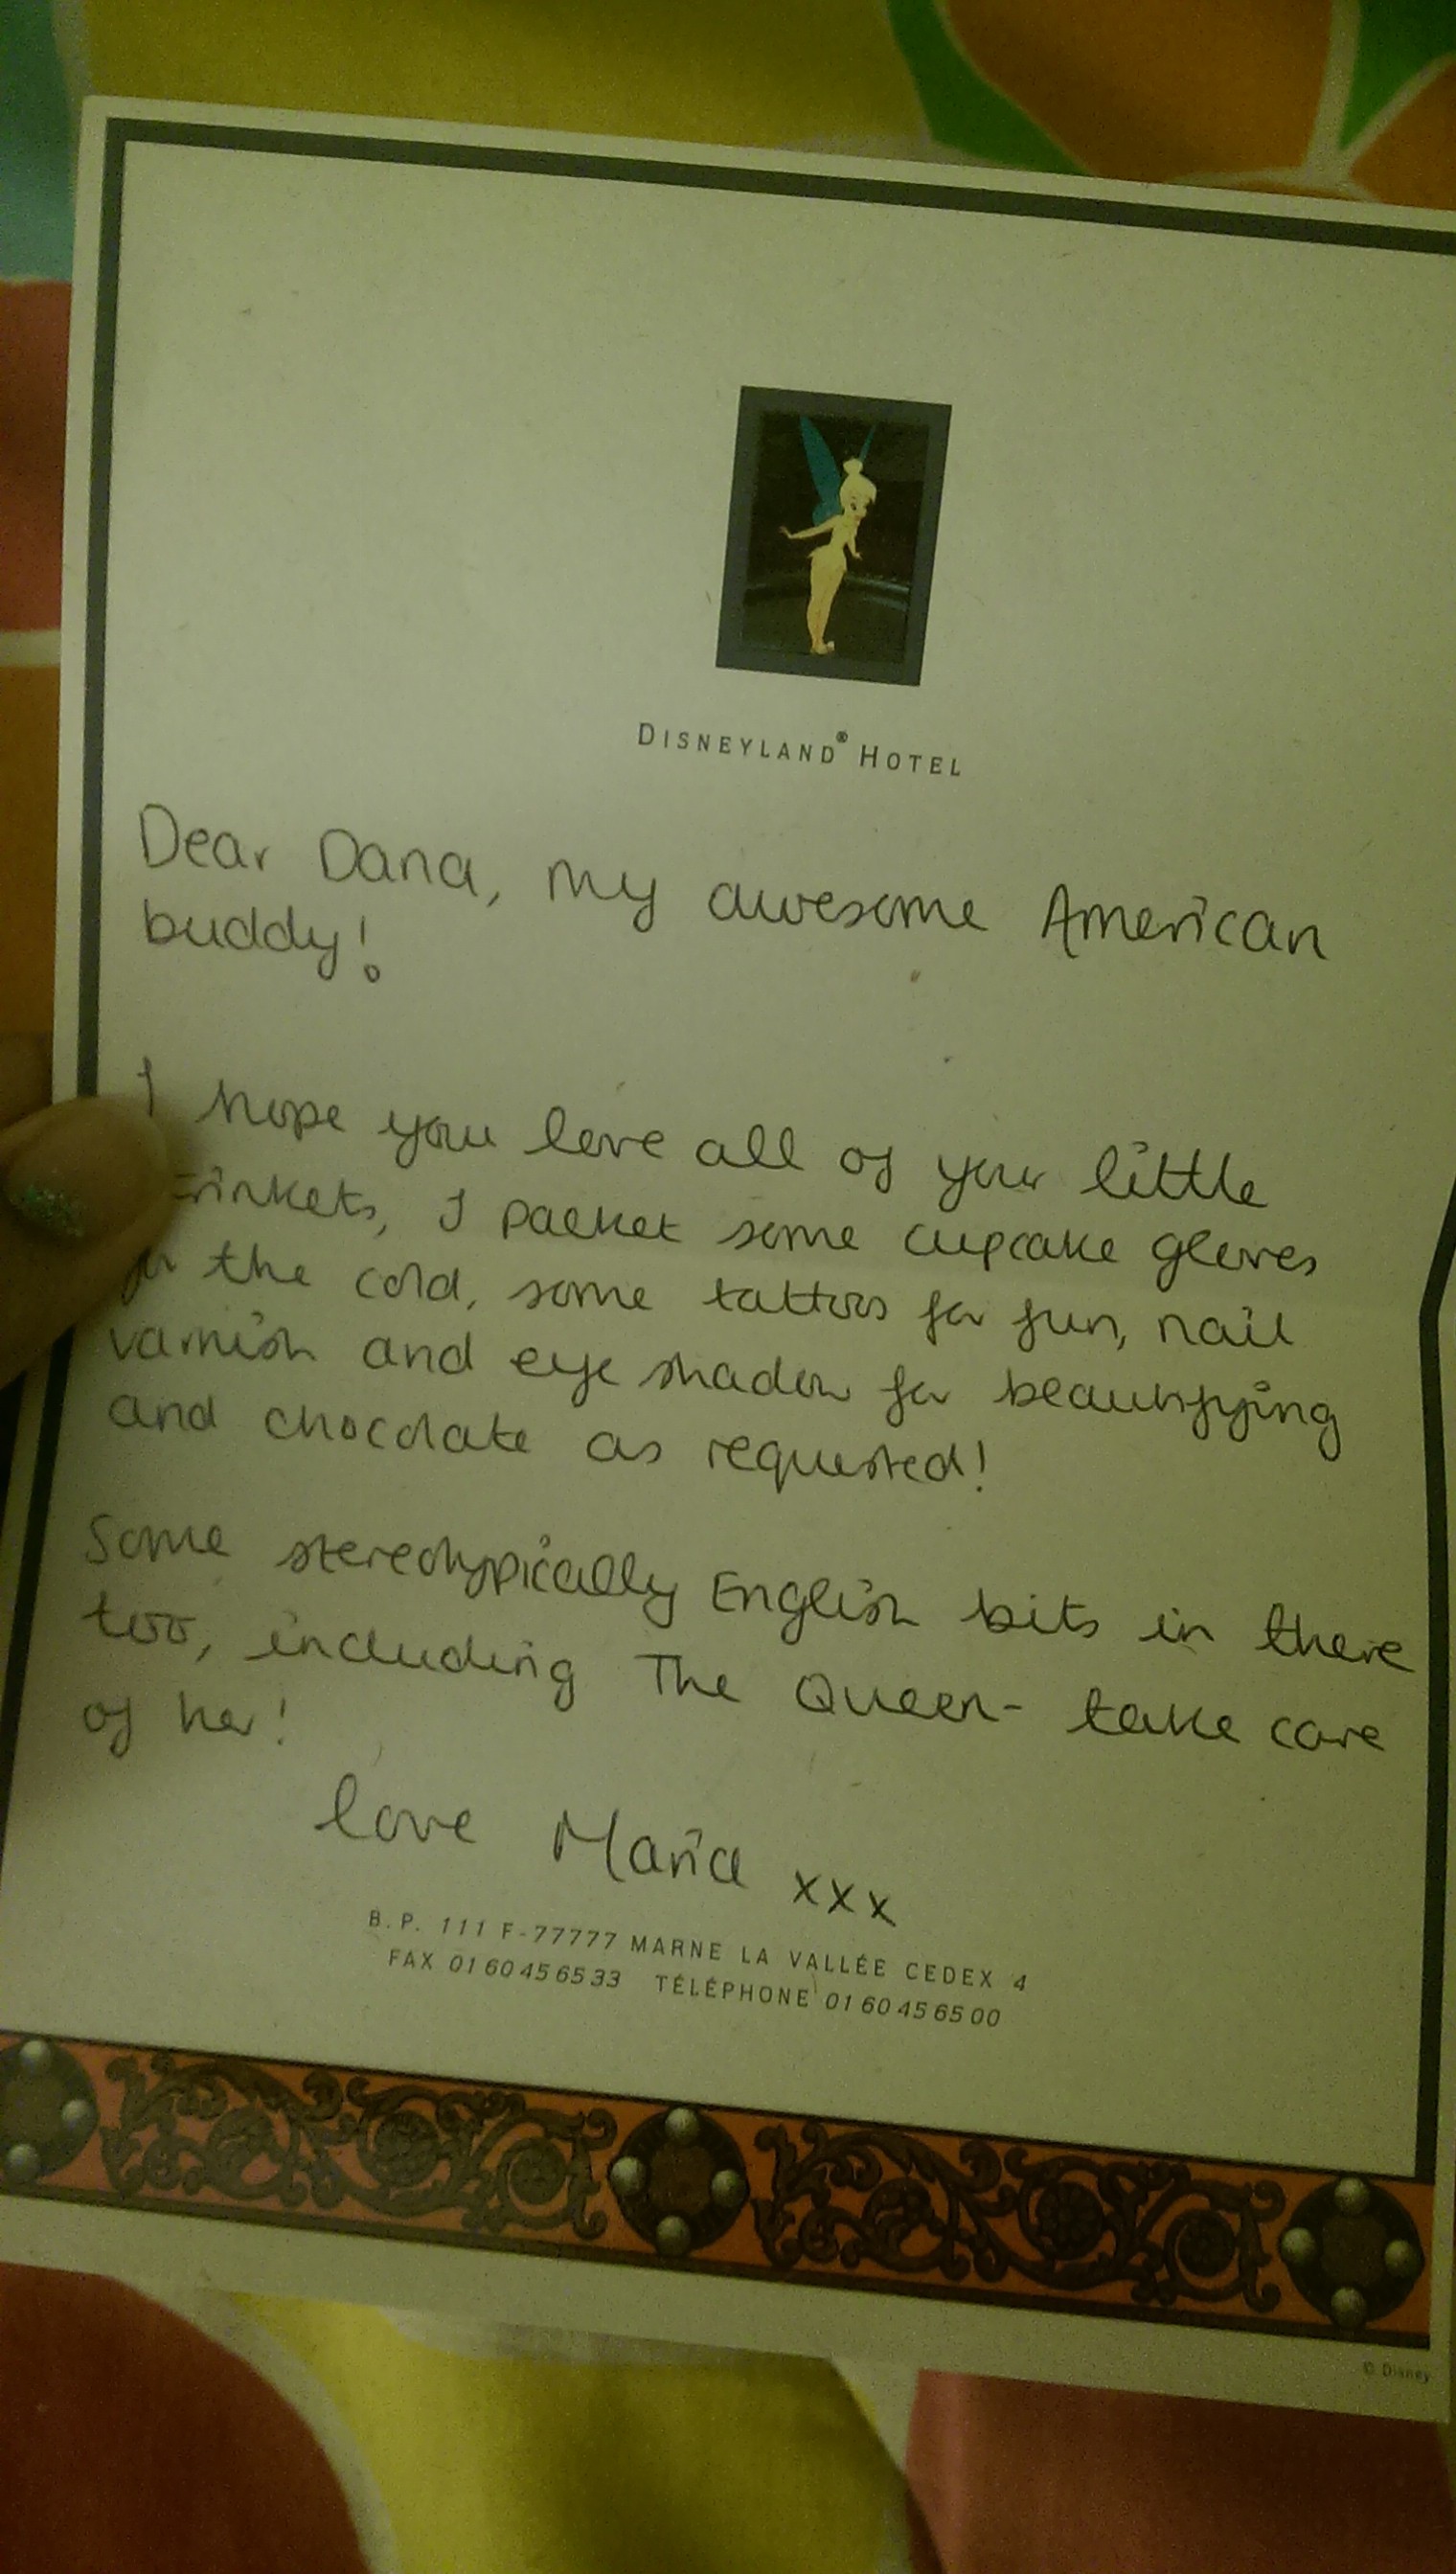 DISNEYLAND® HOTEL
Dear Dana, my awesome American
buddy!
I hope you love all of your little
trinkets, I packet some cupcake gloves
for the cold, some tattoos for fun, nail
varnish and eye shadow for beautifying
and chocolate as requested!
Some stereotypically English bits in there
too, including The Queen- take care
of her!
love Maria xxx
B.P. 111 F-77777 MARNE LA VALLÉE CEDEX 4
FAX 01 60 45 65 33 TÉLÉPHONE 01 60 45 65 00
© Disney